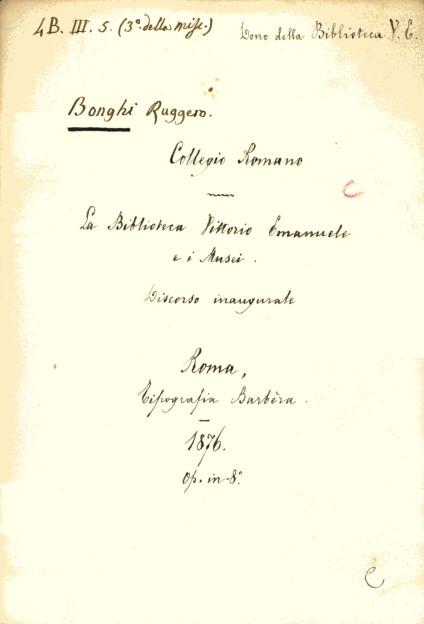 4B. III. 5. (3º della misc.)
Dono della Biblioteca V. E.
Bonghi Ruggero.
Collegio Romano
La Biblioteca Vittorio Emanuele
e i Musei.
Discorso inaugurale
Roma,
Tipografia Barbèra.
1876.
Op. in-8º.
C
C